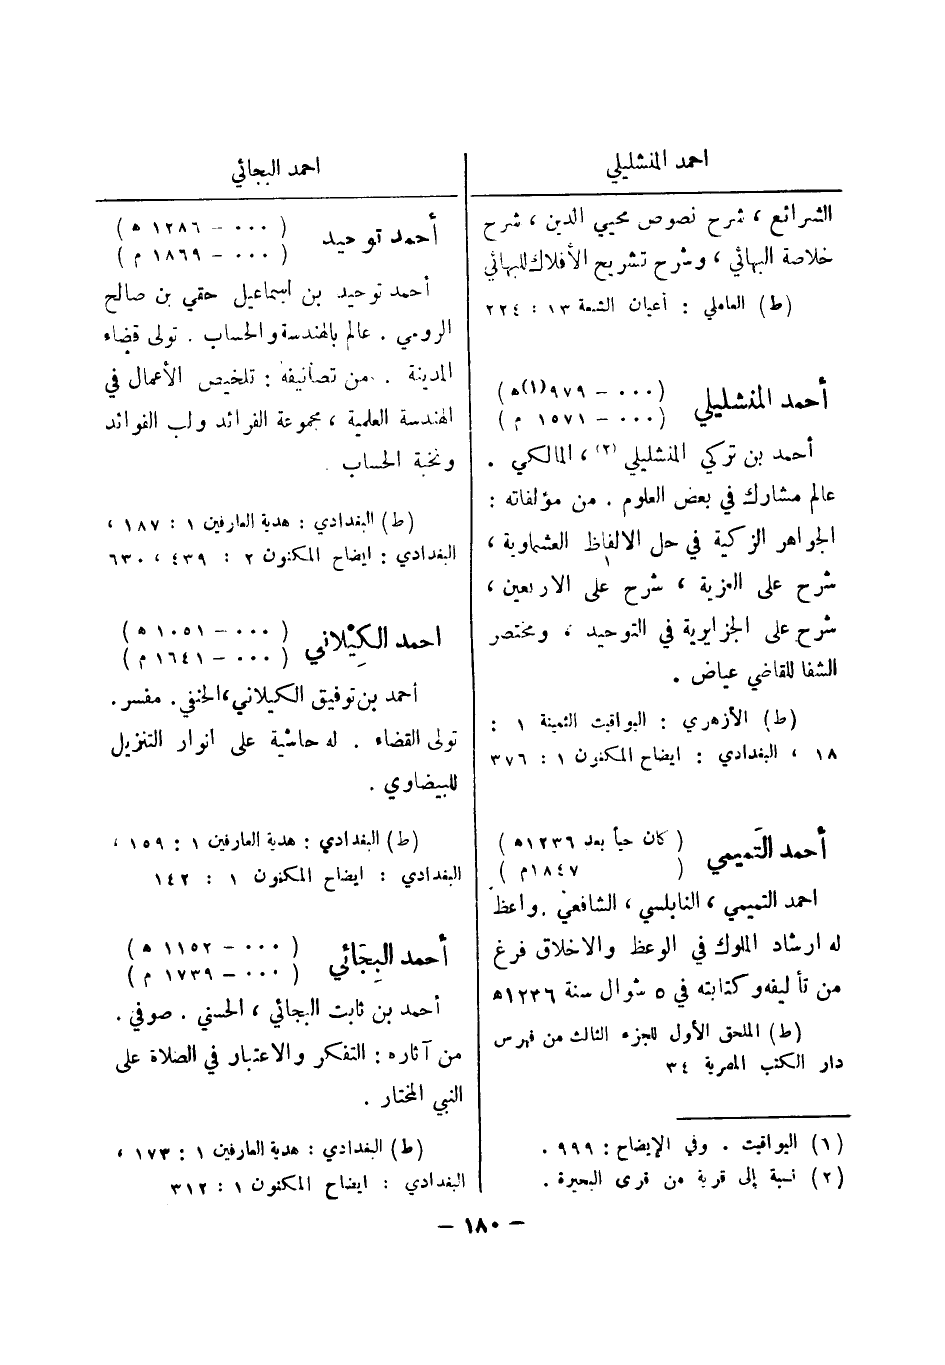 احمد المنشليلي
الشرائع ، شرح نصوص محيي الدين ، شرح
خلاصة البهائي ، وشرح تشريح الأفلاك للبهائي
(ط) العاملي : أعيان الشيعة ١٣ : ٢٢٤
أحمد المنشليلي (٠٠٠ – ٩٧٩(١)ه)
(٠٠٠ – ١٥٧١ م)
أحمد بن تركي المنشليلي (٢) ، المالكي .
عالم مشارك في بعض العلوم . من مؤلفاته :
الجواهر الزكية في حل الالفاظ العشماوية ،
شرح على العزية ، شرح على الاربعين ،
شرح على الجزايرية في التوحيد ، ومختصر
الشفا للقاضي عياض .
(ط) الأزهري : اليواقيت الثمينة ١ :
١٨ ، البغدادي : ايضاح المكنون ١ : ٣٧٦
أحمد التَميمي (كان حياً بعد ١٢٣٦ه)
(١٨٤٧م)
احمد التميمي ، النابلسي ، الشافعي . واعظ
له ارشاد الملوك في الوعظ والاخلاق فرغ
من تأليفه وكتابته في ٥ شوال سنة ١٢٣٦ه
(ط) الملحق الأول للجزء الثالث من فهرس
دار الكتب المصرية ٣٤
(١) اليواقيت . وفي الإيضاح : ٩٩٩ .
(٢) نسبة إلى قرية من قرى البحيرة .
احمد البجائي
أحمد توحيد (٠٠٠ – ١٢٨٦ ه)
(٠٠٠ – ١٨٦٩ م)
أحمد توحيد بن اسماعيل حقي بن صالح
الرومي . عالم بالهندسة والحساب . تولى قضاء
المدينة . من تصانيفه : تلخيص الأعمال في
الهندسة العلمية ، مجموعة الفرائد ولب الفوائد
ونخبة الحساب .
(ط) البغدادي : هدية العارفين ١ : ١٨٧ ،
البغدادي : ايضاح المكنون ٢ : ٤٣٩ ، ٦٣٠
احمد الكِيْلاني (٠٠٠ – ١٠٥١ ه)
(٠٠٠ – ١٦٤١ م)
أحمد بن توفيق الكيلاني ، الحنفي . مفسر .
تولى القضاء . له حاشية على انوار التنزيل
للبيضاوي .
(ط) البغدادي : هدية العارفين ١ : ١٥٩ ،
البغدادي : ايضاح المكنون ١ : ١٤٢
أحمد البِجَائي (٠٠٠ – ١١٥٢ ه)
(٠٠٠ – ١٧٣٩ م)
أحمد بن ثابت البجائي ، الحسني . صوفي .
من آثاره : التفكر والاعتبار في الصلاة على
النبي المختار .
(ط) البغدادي : هدية العارفين ١ : ١٧٣ ،
البغدادي : ايضاح المكنون ١ : ٣١٢
– ١٨٠ –